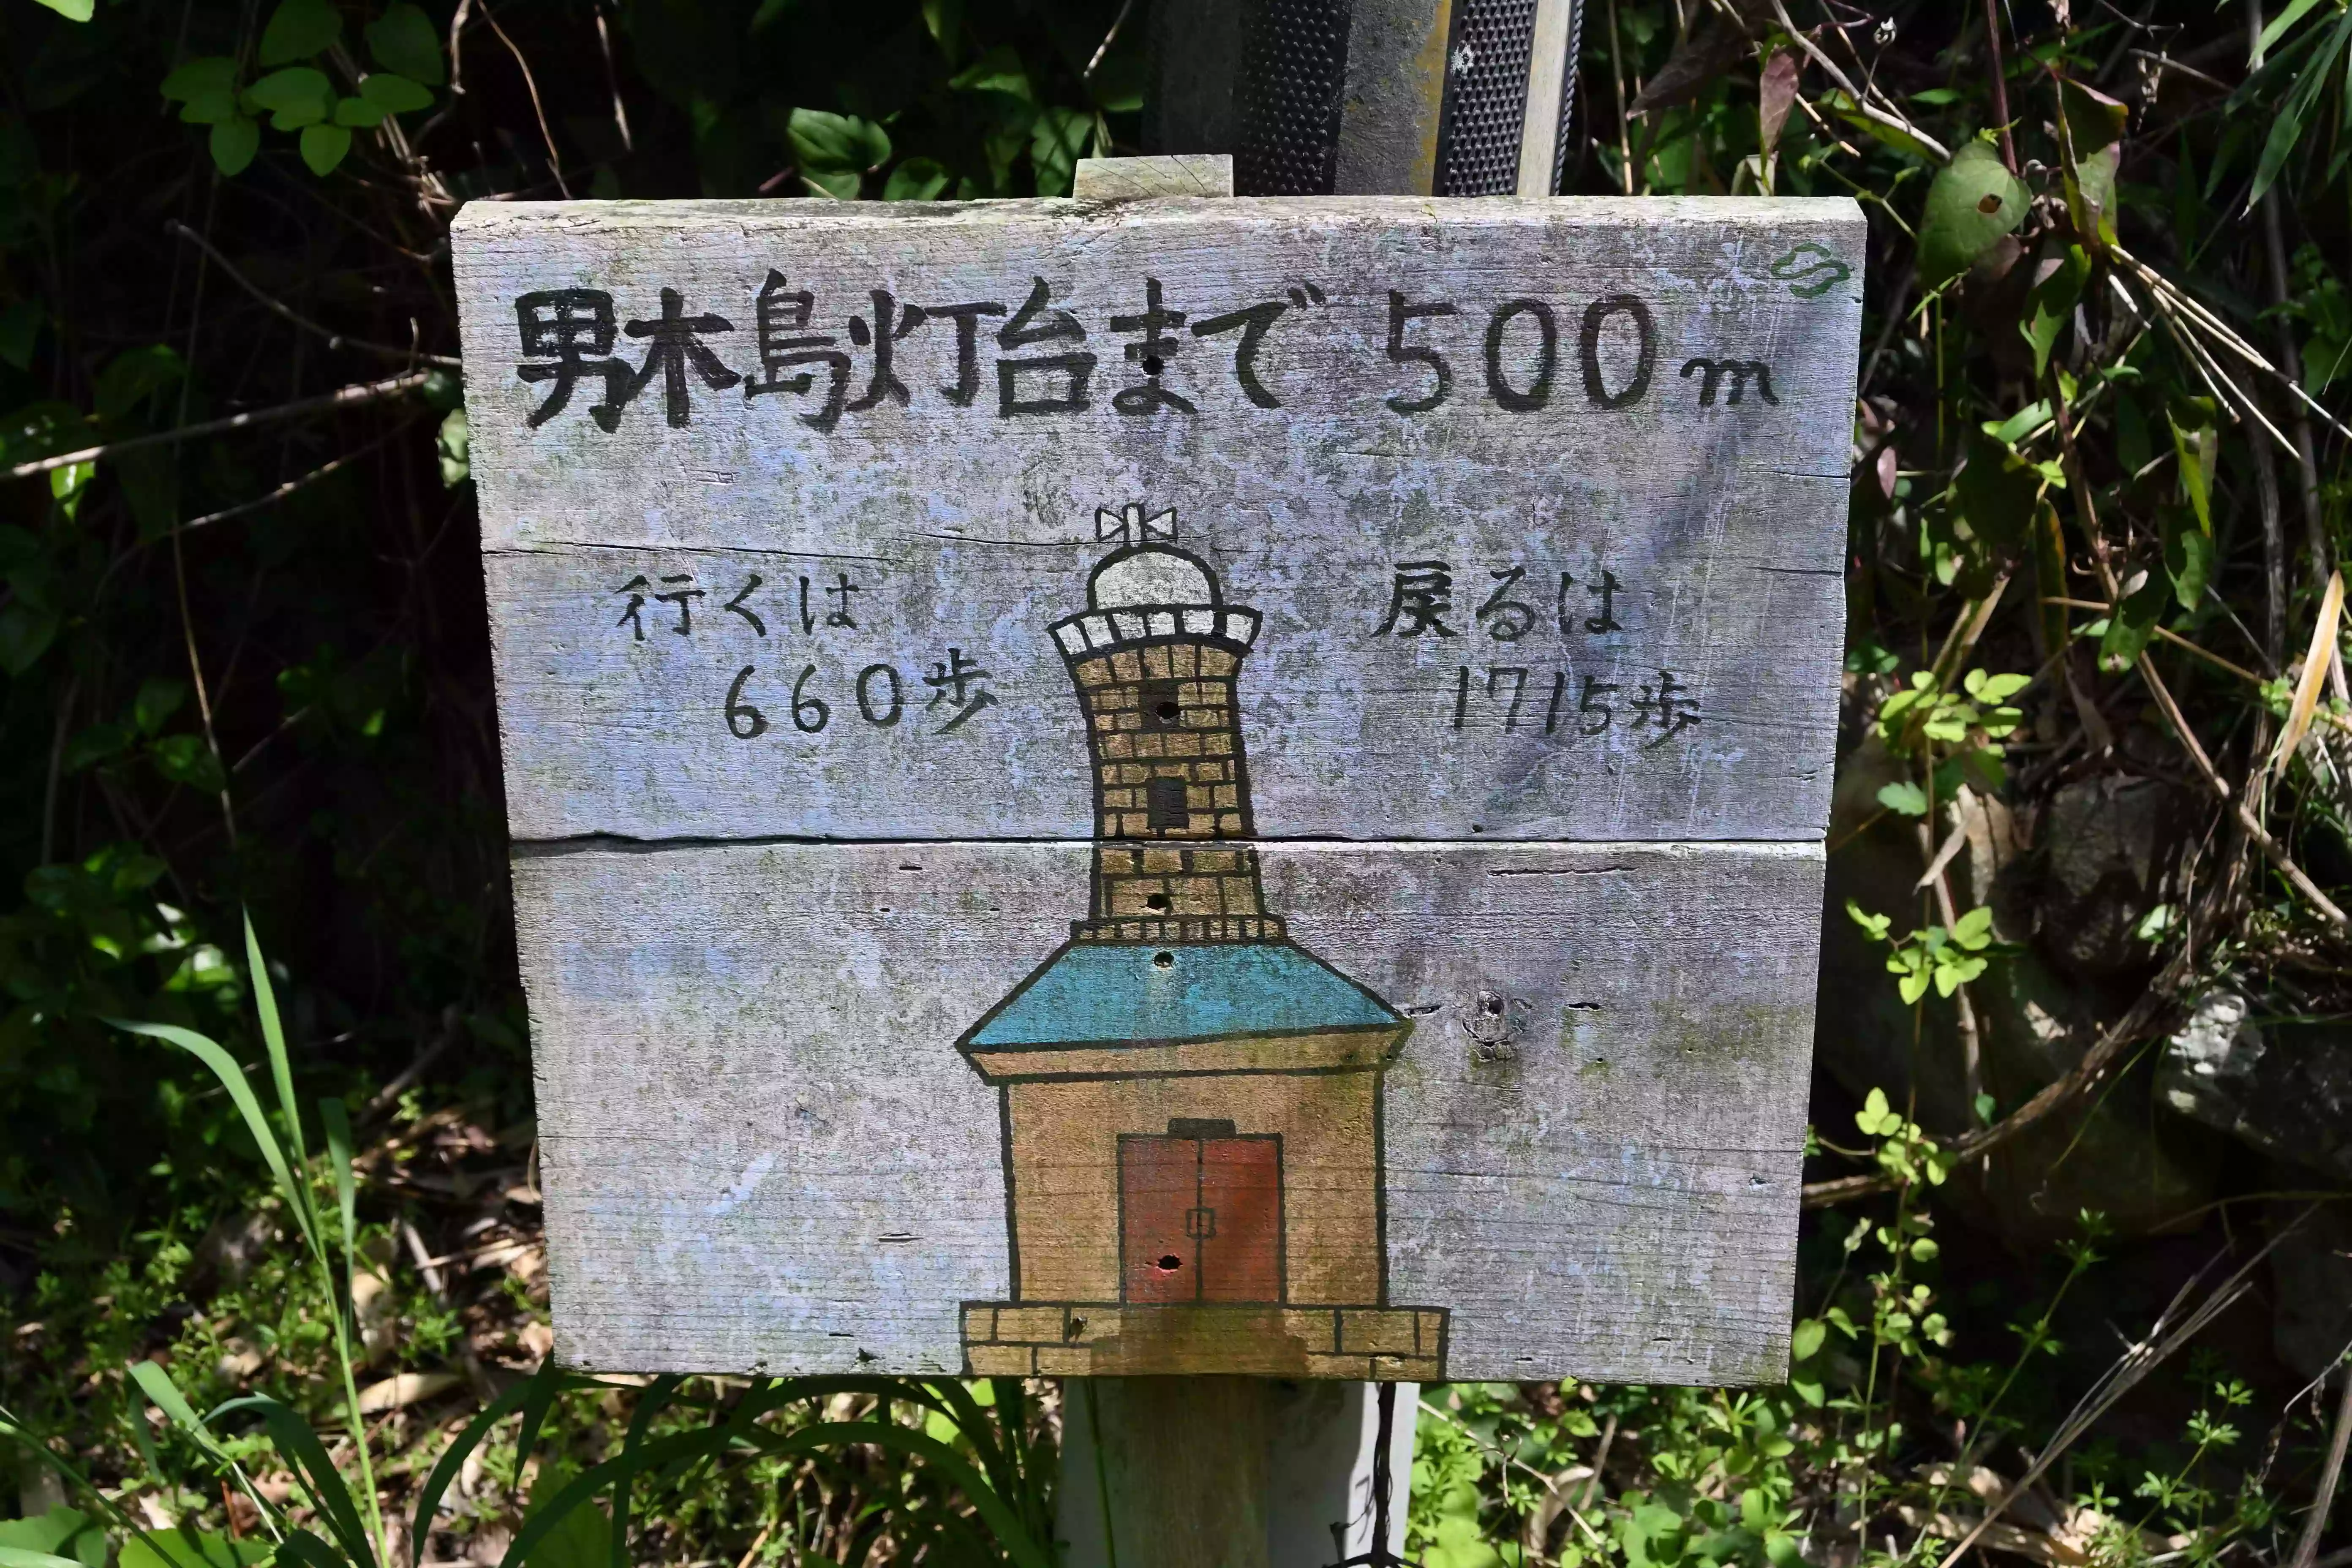 男木島灯台まで 500m
行くは
660歩
戻るは
1715歩